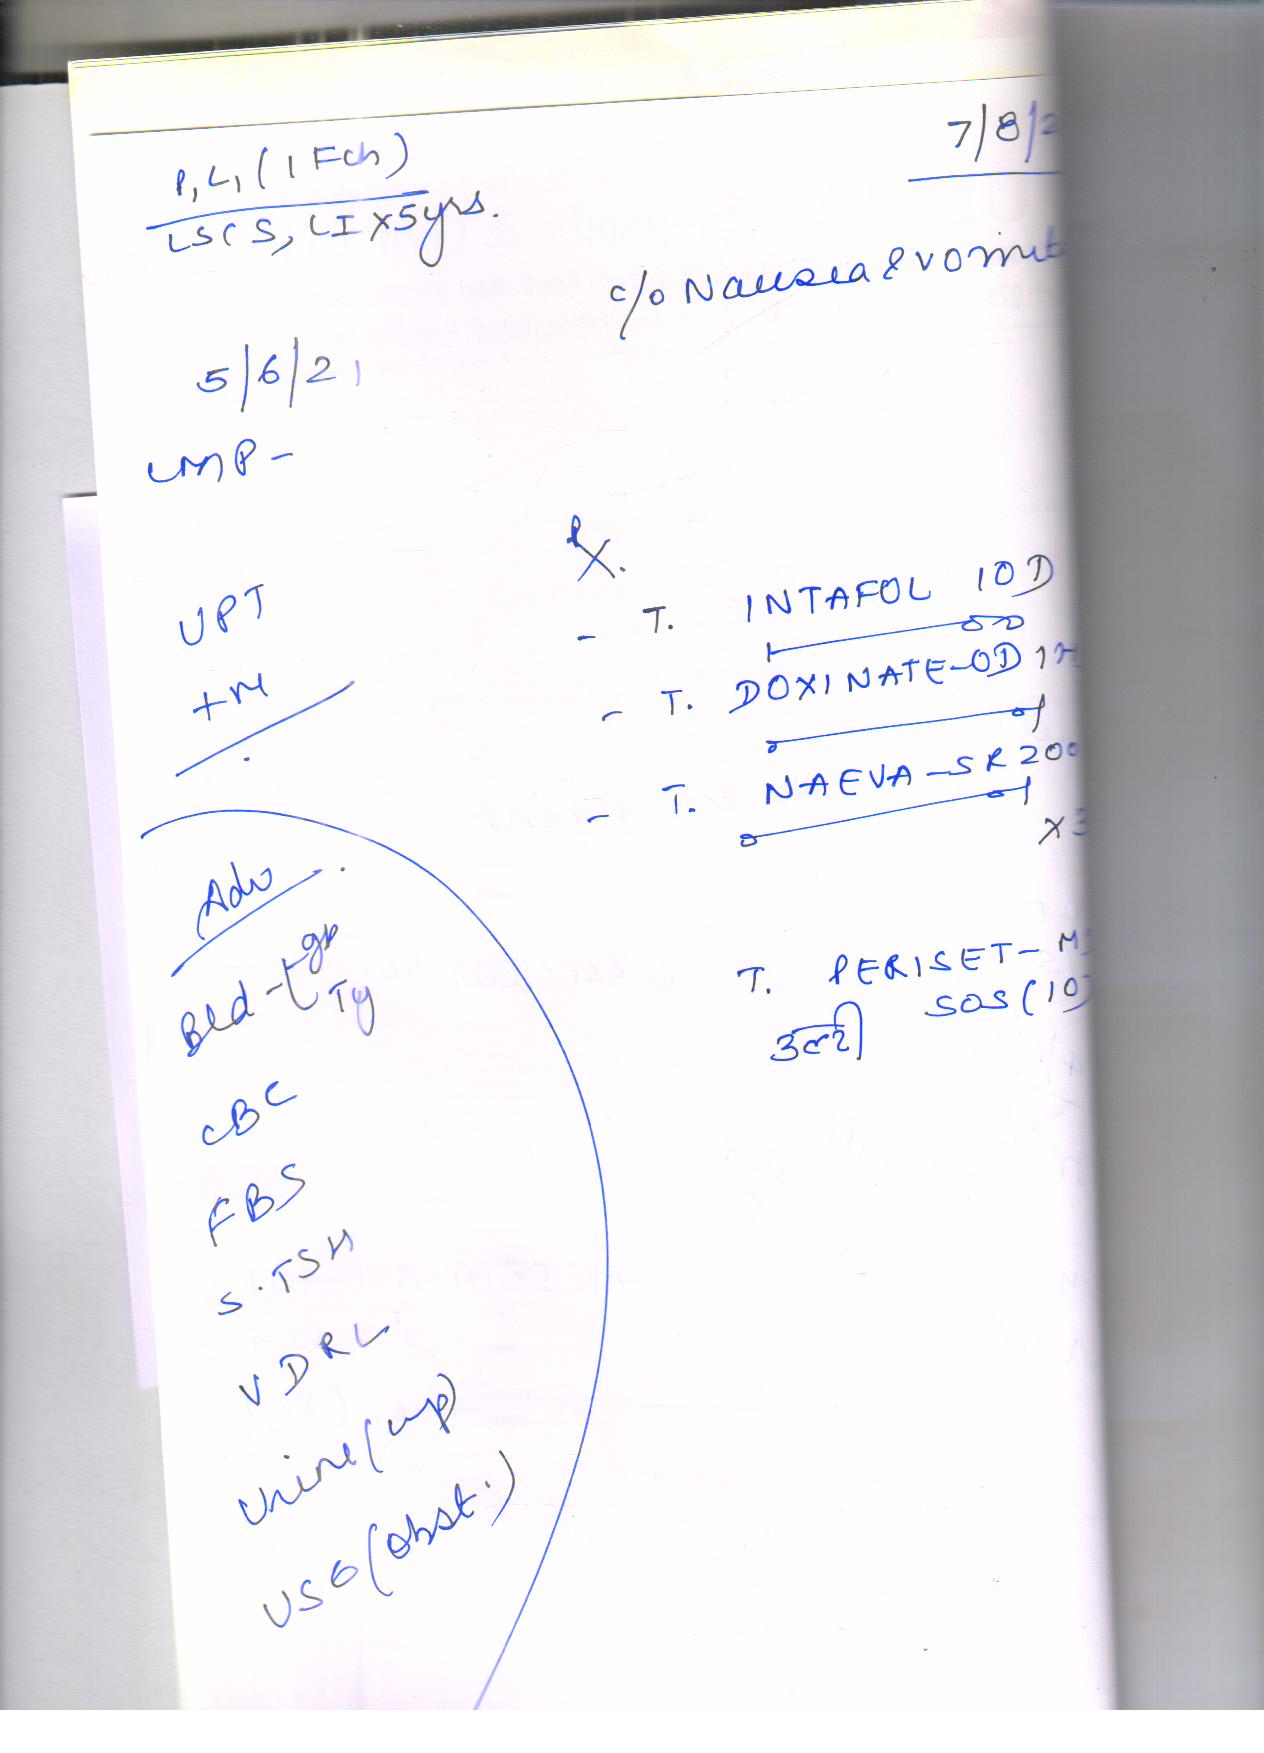 7/8/2
P1L1 (1 Fch)
LSCS, LI X 5yrs.
c/o Nausea & vomit
5/6/21
LMP -
Rx.
UPT
+ve
- T. INTAFOL 1OD
- T. DOXINATE-OD
- T. NAEVA-SR 200
X 3
Adv.
Bld - gp
Ty
T. PERISET-M
SOS (10)
उल्टी
CBC
FBS
S. TSH
VDRL
Urine (
USG (obst.)